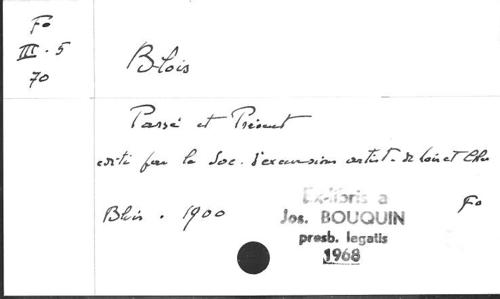 Fo
III. 5
70
Blois
Passé et Présent
edité par la Soc. d'excursions artist. de Loir et Cher
Blois. 1900
Fo
Ex-libris a
Jos. BOUQUIN
presb. legatis
1968